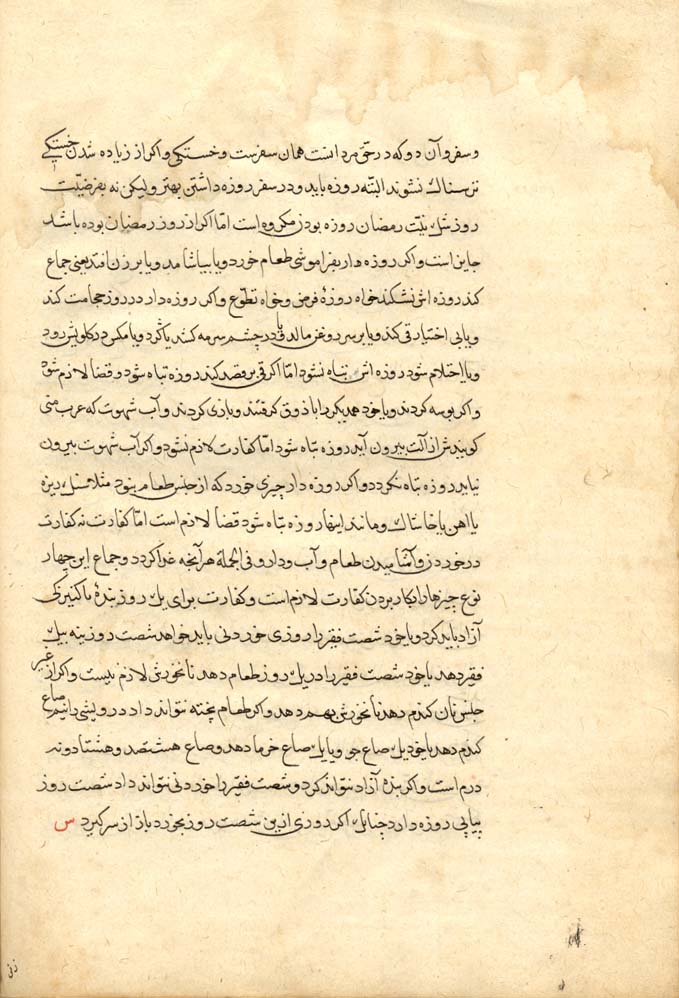 و سفر و آن دو که در حق مرد است همان سفرست و خستکی و اکر از زیاده شدن خستکی
ترسناک نشوند البته روزه باید و در سفر روزه داشتن بهتر ولیکن نه بفرضیّت
روز شک بنیّت رمضان روزه بودن مکروه است امّا اکر از روز رمضان بوده باشد
جایز است و اکر روزه دار بفراموشی طعام خورد و یا بیاشامد و یا بر زن افتد یعنی جماع
کند روزه اش نشکند خواه روزهٔ فرض و خواه تطوّع و اکر روزه دار در روز حجامت کند
و یا بی اختیار قی کند و یا بر سر روغن مالد و یا در چشم سرمه کشد یا کرد و یا مکس در کلویش رود
و یا احتلام شود روزه اش تباه نشود امّا اکر قی بر قصد کند روزه تباه شود و قضا لازم شود
و اکر بوسه کردند و یا خود همدیکر را با ذوق کرفتند و بازی کردند و آب شهوت که عرب منی
کویندش از آلت بیرون آید روزه تباه شود امّا کفارت لازم نشود و اکر آب شهوت بیرون
نیاید روزه تباه نکردد و اکر روزه دار چیزی خورد که از جنس طعام نبود مثلا سنک ریزه
یا اهن یا خاشاک و مانند اینها روزه تباه شود قضا لازم است امّا کفارت نه کفارت
در خوردن و آشامیدن طعام و آب و دارو فی الجملة هر آنچه غدا کردد و جماع این چهار
نوع چیزها را بکار بردن کفارت لازم است و کفارت برای یک روز بندهٔ یا کنیزکی
آزاد باید کرد و یا خود شصت فقیر را روزی خوردنی باید خواهد شصت روزینه بیک
فقیر دهد یا خود شصت فقیر را در یک روز طعام دهد نانخورش لازم نیست و اکر از غیر
جنس نان کندم دهد نانخورش بهم دهد و اکر طعام پخته نتواند داد درویشی را نیم صاع
کندم دهد یا خود یک صاع جو و یا یک صاع خرما دهد و صاع هشتصد و هشتاد و نه
درم است و اکر بنده آزاد نتواند کرد و شصت فقیر را خوردنی نتواند داد شصت روز
پیاپی روزه دارد چنانک اکر روزی ازین شصت روز بخورد باز از سر کیرد س